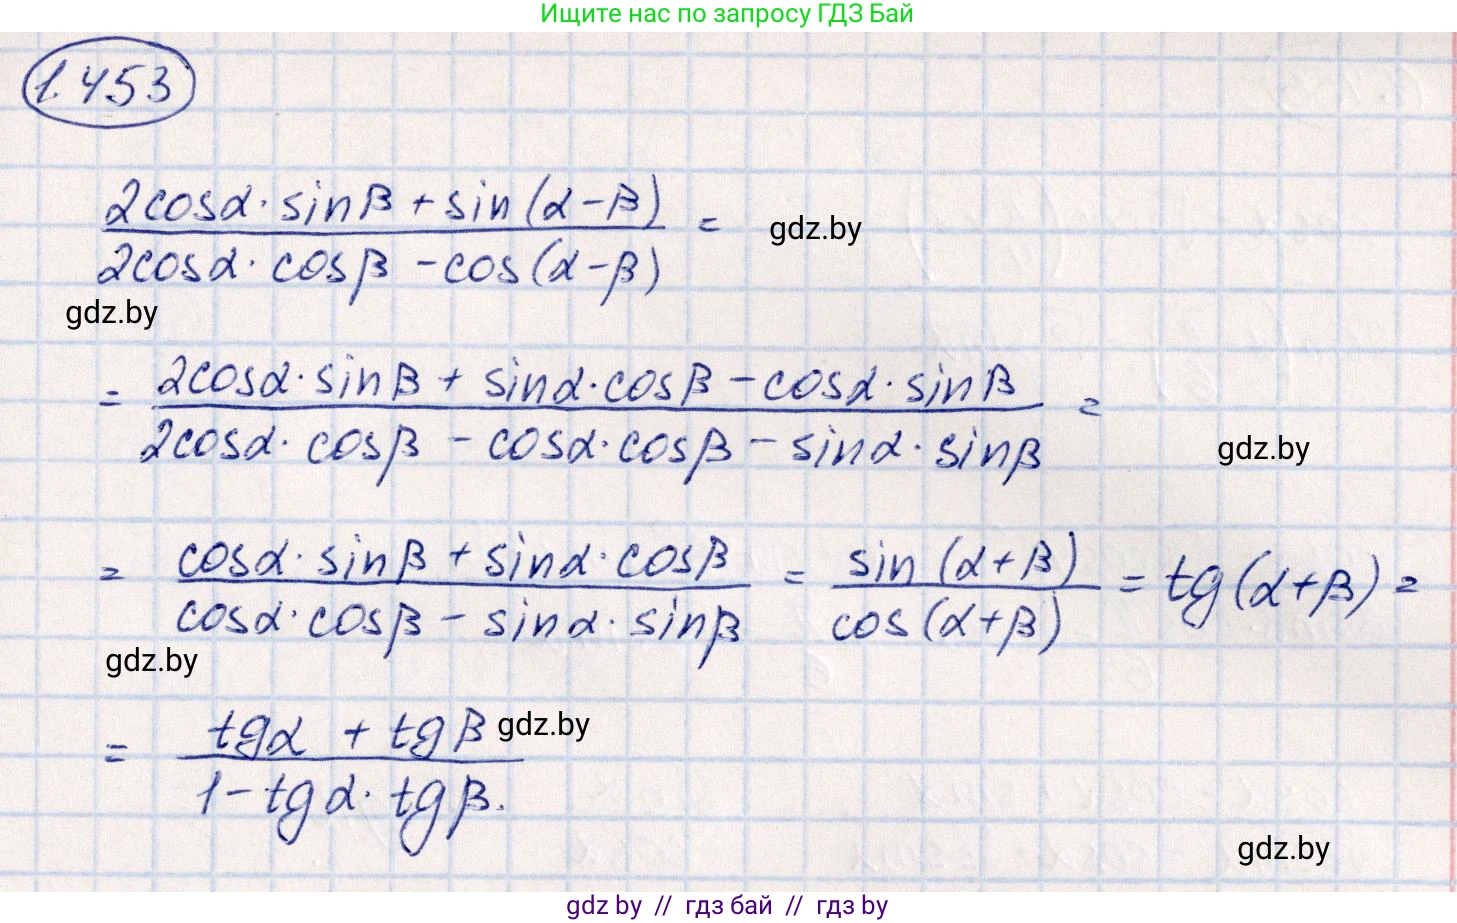 Ищите нас по запросу ГДЗ Бай
1.453
2cosα · sinβ + sin(α-β) =
gdz.by
2cosα · cosβ - cos(α-β)
gdz.by
= 2cosα · sinβ + sinα · cosβ - cosα · sinβ =
2cosα · cosβ - cosα · cosβ - sinα · sinβ
gdz.by
= cosα · sinβ + sinα · cosβ = sin(α+β) = tg(α+β) =
cosα · cosβ - sinα · sinβ cos(α+β)
gdz.by
= tgα + tgβ
gdz.by
1 - tgα · tgβ.
gdz.by
gdz.by // гдз бай // гдз by